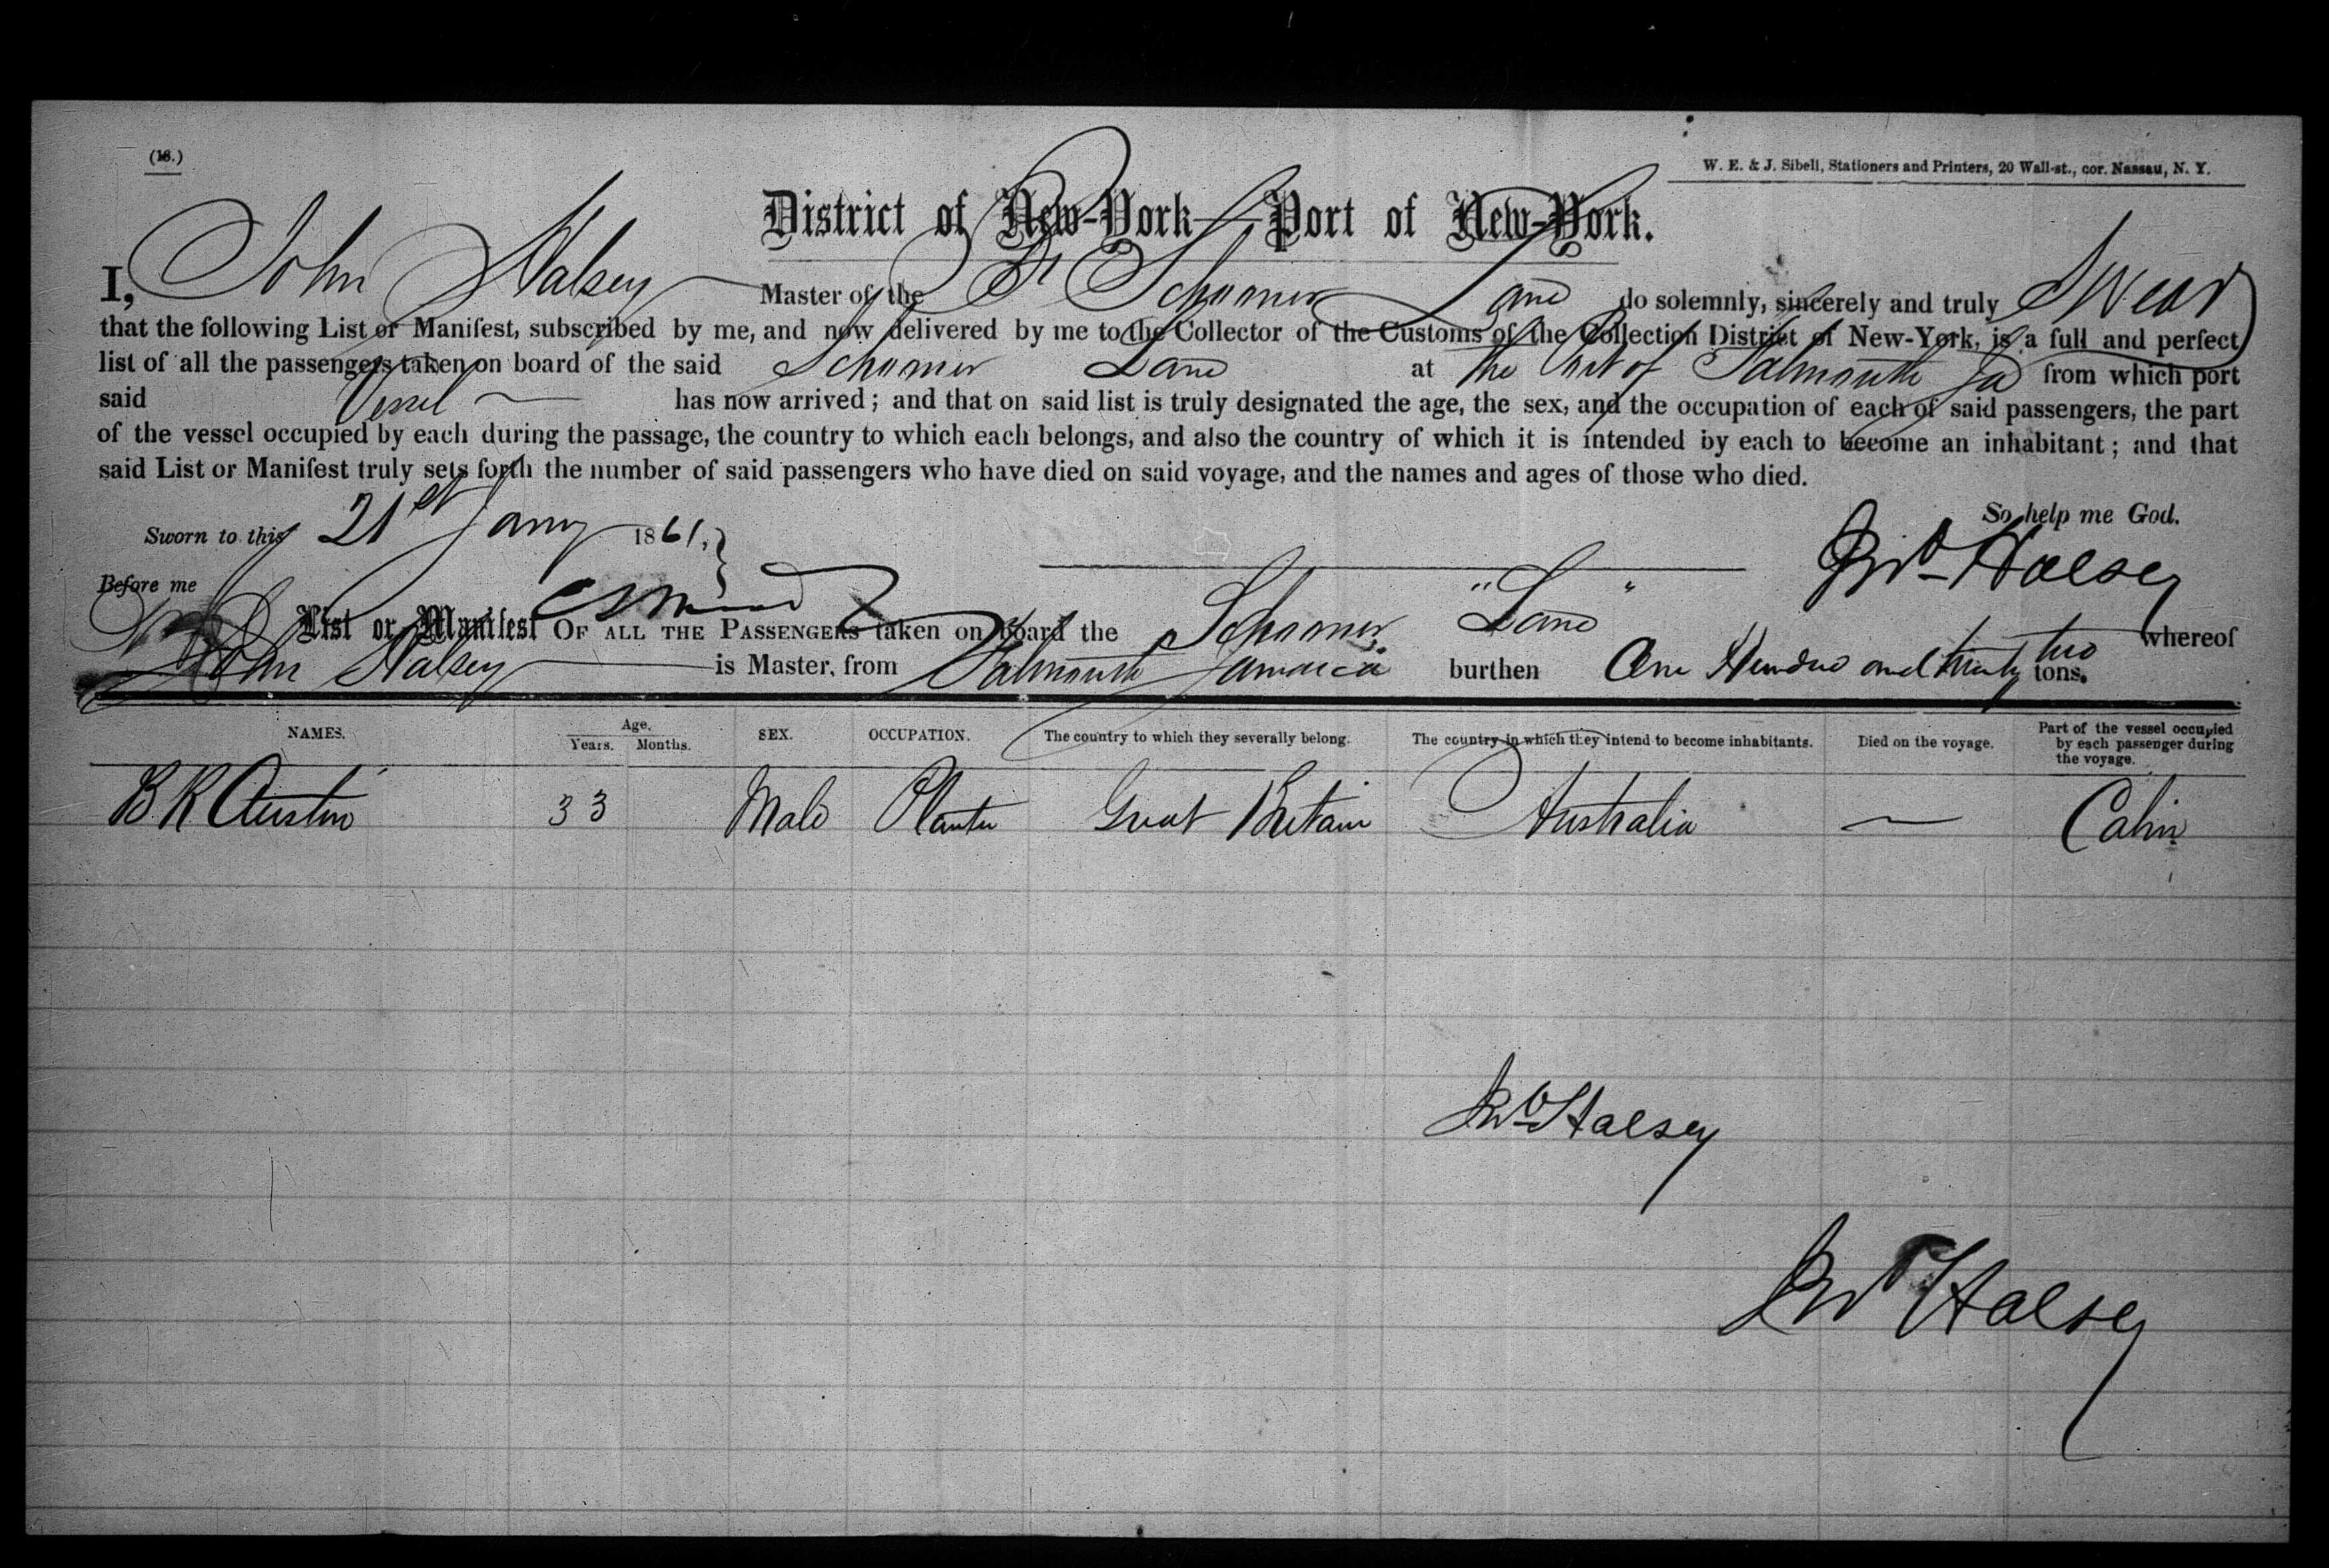 (18.)
W. E. & J. Sibell, Stationers and Printers, 20 Wall-st., cor. Nassau, N. Y.
District of New-York—Port of New-York.
I, John Halsey Master of the Br Schooner Lane do solemnly, sincerely and truly Swear
that the following List or Manifest, subscribed by me, and now delivered by me to the Collector of the Customs of the Collection District of New-York, is a full and perfect
list of all the passengers taken on board of the said Schooner Lane at the Port of Falmouth Ja from which port
said Vessel has now arrived; and that on said list is truly designated the age, the sex, and the occupation of each of said passengers, the part
of the vessel occupied by each during the passage, the country to which each belongs, and also the country of which it is intended by each to become an inhabitant; and that
said List or Manifest truly sets forth the number of said passengers who have died on said voyage, and the names and ages of those who died.
So help me God.
Sworn to this 21st Jany 1861,
Jno Halsey
Before me
List or Manifest OF ALL THE PASSENGERS taken on board the Schooner "Lane" whereof
John Halsey is Master, from Falmouth Jamaica burthen One Hundred and twenty two tons.
NAMES. Age. Years. Months. SEX. OCCUPATION. The country to which they severally belong. The country in which they intend to become inhabitants. Died on the voyage. Part of the vessel occupied by each passenger during the voyage.
B. R Austin 33 Male Planter Great Britain Australia — Cabin
Jno Halsey
Jno Halsey